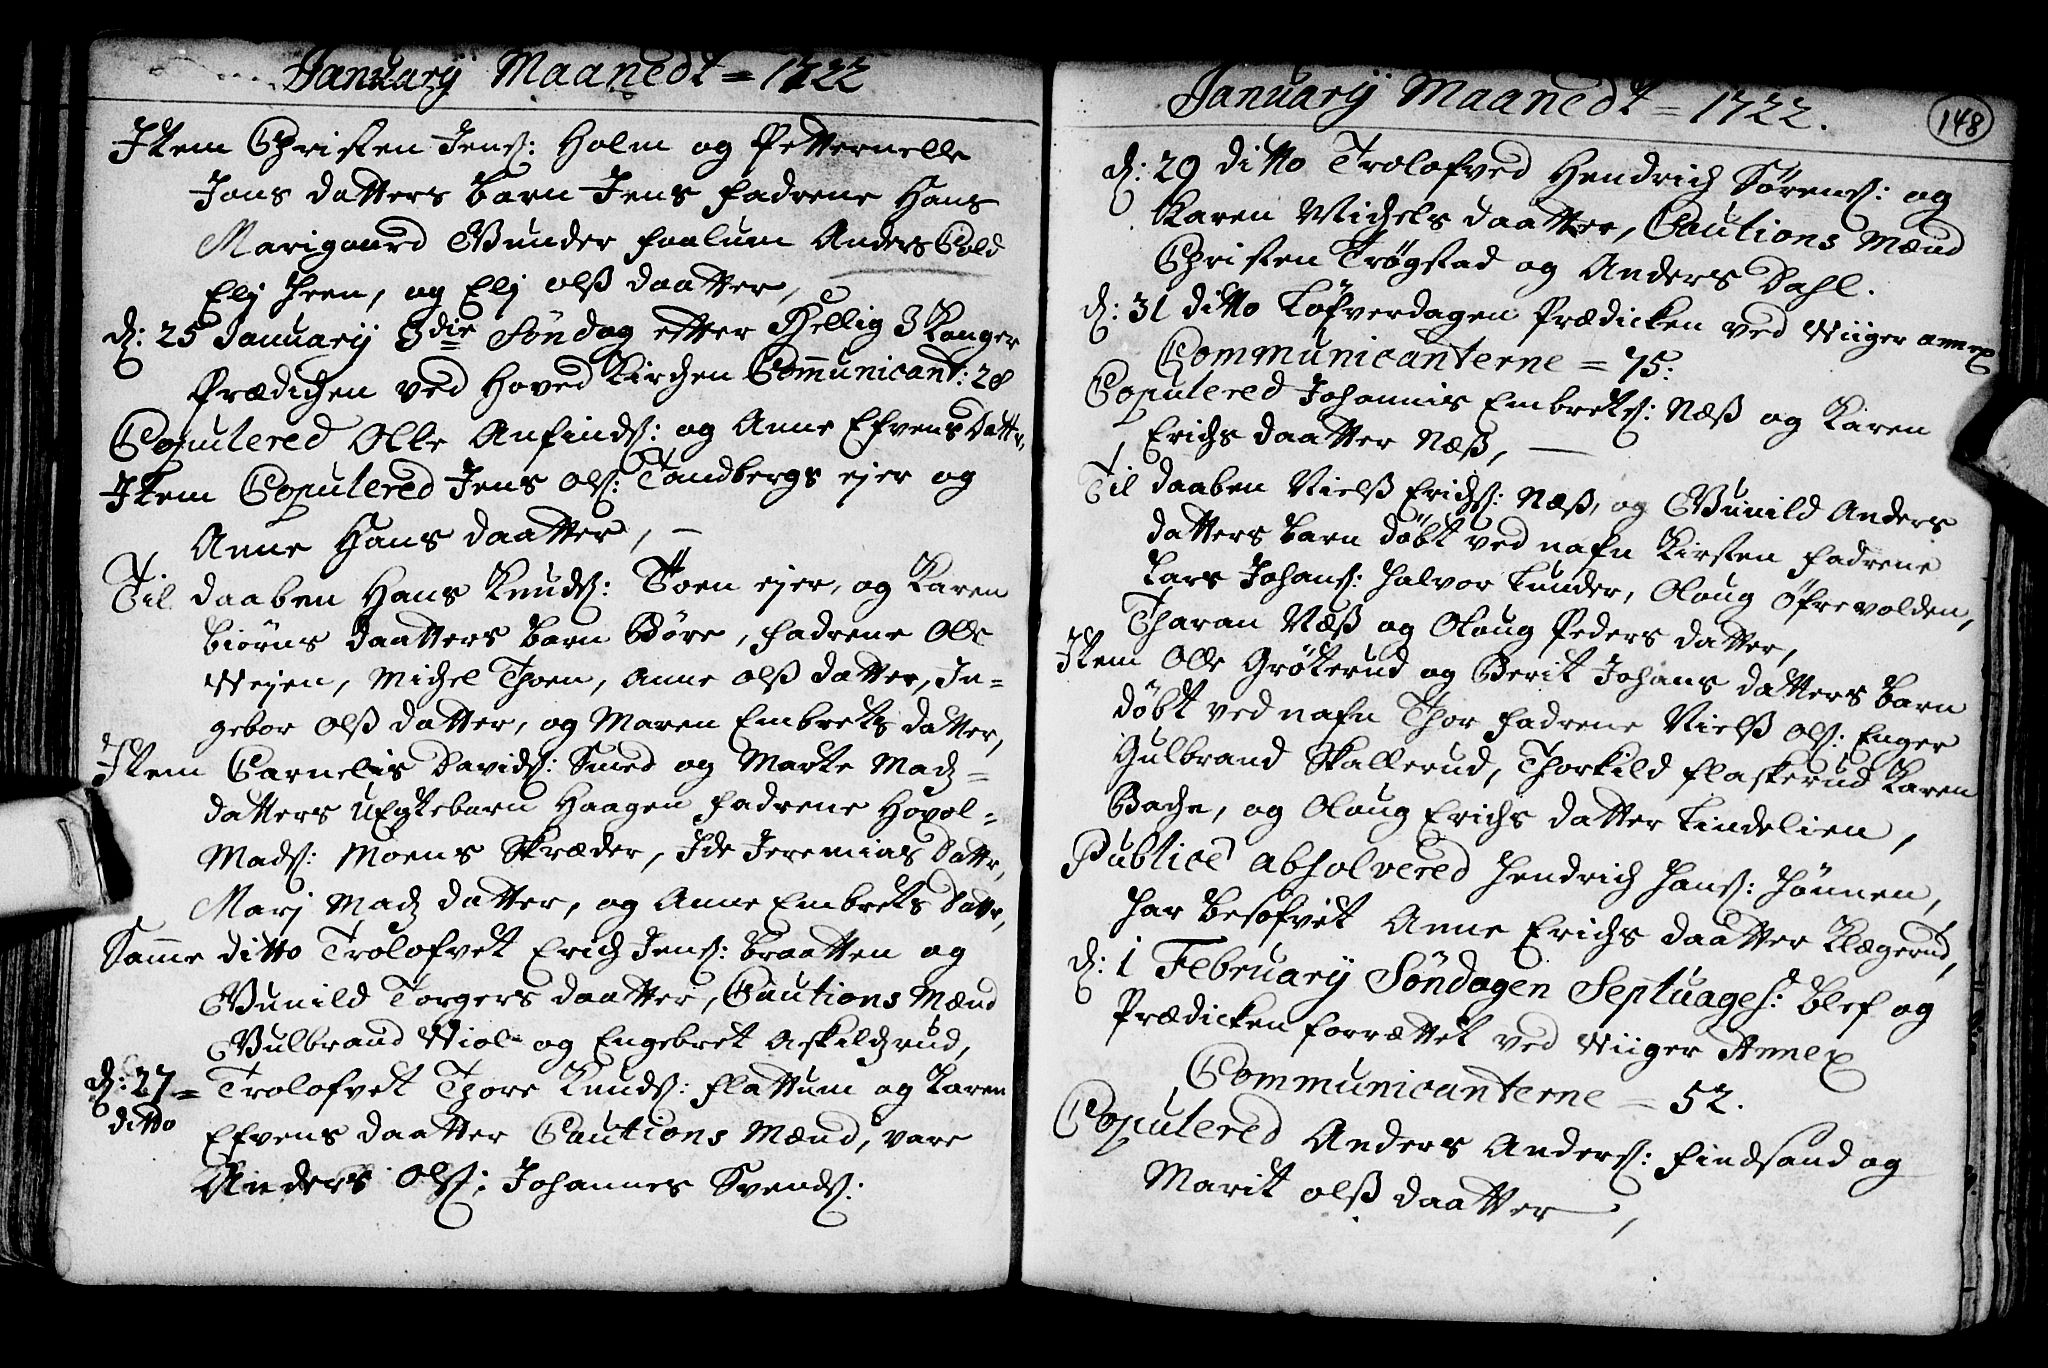 January Maanedt = 1722
Item Christen Jens: Holm og Petternelle
Jens datters barn Jens fadrene Hans
Marigaard Gunder Faalum Anders Gold
Elj Heen, og Elj olß daatter,
d: 25 January 3die Söndag etter Hellig 3 Konger
Prædichen ved Hoved Kirchen Communicant: 28
Copulered Olle Anfinds: og Anne Efvens Dattr,
Item Copulered Jens Ols: Tandbergs ejer og
Anne Hans daatter, —
Til daaben Hans Knuds: Toen ejer, og Karen
Biörns daatters barn Böre, fadrene Olle
Wejen, Michel Thoen, Anne olß datter, In=
gebor olß datter, og Maren Embrets datter,
Item Carnelis Davids: Smed og Marte Madz=
datters uEgtebarn Haagen fadrene Hoxol=
Mads: Moens Skræder, Ide Jeremias Dattr,
Marj Madz datter, og Anne Embrets Dattr,
Samme ditto Trolofvet Erich Jens: Braatten og
Gunild Torgers daatter, Cautions Mænd
Gulbrand Wiol= og Engebret Askildzrud,
d: 27= Trolofvet Thore Knuds: Flattum og Karen
ditto
Efvens daatter Cautions Mænd, vare
Anders Ols: Johannes Svends:
January Maanedt = 1722.
148
d: 29 ditto Trolofved Hendrich Sörens: og
Karen Michels daatter, Cautions Mænd
Christen Trögstad og Anders Dahl.
d: 31 ditto Löfverdagen Prædicken ved Wiiger annex
Communicanterne = 75:
Copulered Johannis Embrets: Næß og Karen
Erichs daatter Næß, —
Til daaben Nielß Erichs: Næß, og Gunild Anders
datters barn döbt ved nafn Kirsten fadrene
Lars Johans: Halvor Lunder, Olaug Öfrevolden,
Tharan Næß og Olaug Peders datter,
Item Olle Grötterud og Berit Johans datters barn
döbt ved nafn Thor fadrene Nielß Ols: Enger
Gulbrand Skallerud, Thorkild Flaskerud Karen
Bache, og Olaug Erichs datter Lindelien,
Publice absolvered Hendrich Hans: Hönnen,
har besofvet Anne Erichs daatter Klægerud,
d: 1 February Söndagen Septuages: blef og
Prædicken forrættet ved Wiiger Annex
Communicanterne = 52.
Copulered Anders Anders: Findsand og
Marit olß daatter,